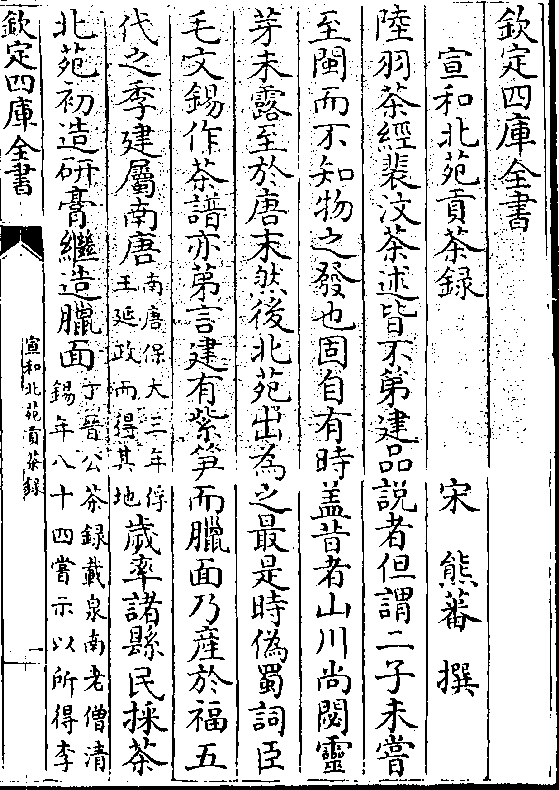 欽定四庫全書
宣和北苑貢茶録
宋 熊蕃 撰
陸羽茶經裴汶茶述皆不第建品說者但謂二子未嘗
至閩而不知物之發也固自有時蓋昔者山川尚閟靈
芽未露至於唐末然後北苑出為之最是時偽蜀詞臣
毛文錫作茶譜亦第言建有紫笋而臘面乃產於福五
代之季建屬南唐南唐保大三年俘王延政而得其地歲率諸縣民採茶
北苑初造研膏繼造臘面丁晉公茶録載泉南老僧清錫年八十四嘗示以所得李
欽定四庫全書
宣和北苑貢茶録
一